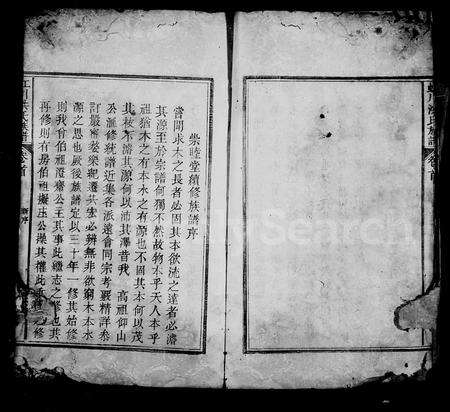 柴睦堂續修族譜序
嘗聞求木之長者必固其本欲流之遠者必濬
其源至於宗譜何獨不然故物本乎天人本乎
祖猶木之有本水之有源也不固其本何以茂
其枝不濬其源何以沛其澤昔我 高祖仰山
公
修族譜近集各派遠會同宗考嚴精詳參
訂嚴
無非欲窮木本水
源之思也厥後族譜定以三十年一修其始修
則我曾伯祖
公主其事此繼志之修也其
再修則有房伯祖
公操其權此
之修
卷首